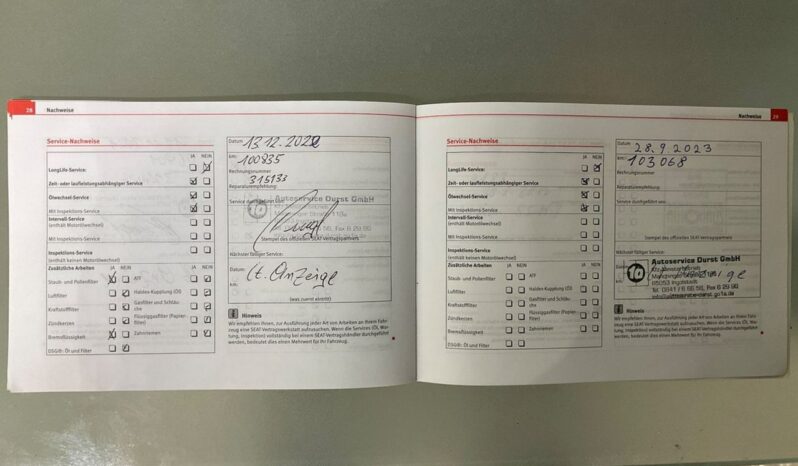 28
Nachweise
Service-Nachweise
JA NEIN
LongLife-Service:
Zeit- oder laufleistungsabhängiger Service
Ölwechsel-Service
Mit Inspektions-Service
Intervall-Service
(enthält Motorölwechsel)
Mit Inspektions-Service
Inspektions-Service
(enthält keinen Motorölwechsel)
Zusätzliche Arbeiten JA NEIN JA NEIN
Staub- und Pollenfilter ATF
Luftfilter Haldex-Kupplung (Öl)
Kraftstofffilter Gasfilter und Schläuche
Zündkerzen Flüssiggasfilter (Papierfilter)
Bremsflüssigkeit Zahnriemen
DSG®: Öl und Filter
Datum 13.12.2022
km: 100935
Rechnungsnummer
315933
Reparaturempfehlung:
Service durchgeführt von:
Autoservice Durst GmbH
Stempel des offiziellen SEAT Vertragspartners
Nächster fälliger Service:
Datum:
lt. Anzeige
km:
(was zuerst eintritt)
Hinweis
Wir empfehlen Ihnen, zur Ausführung jeder Art von Arbeiten an Ihrem Fahrzeug eine SEAT-Vertragswerkstatt aufzusuchen. Wenn die Services (Öl, Wartung, Inspektion) vollständig bei einem SEAT-Vertragshändler durchgeführt werden, bedeutet dies einen Mehrwert für Ihr Fahrzeug.
Nachweise
29
Service-Nachweise
JA NEIN
LongLife-Service:
Zeit- oder laufleistungsabhängiger Service
Ölwechsel-Service
Mit Inspektions-Service
Intervall-Service
(enthält Motorölwechsel)
Mit Inspektions-Service
Inspektions-Service
(enthält keinen Motorölwechsel)
Zusätzliche Arbeiten JA NEIN JA NEIN
Staub- und Pollenfilter ATF
Luftfilter Haldex-Kupplung (Öl)
Kraftstofffilter Gasfilter und Schläuche
Zündkerzen Flüssiggasfilter (Papierfilter)
Bremsflüssigkeit Zahnriemen
DSG®: Öl und Filter
Datum 28.9.2023
km: 103068
Rechnungsnummer
Reparaturempfehlung:
Service durchgeführt von:
Stempel des offiziellen SEAT Vertragspartners
Nächster fälliger Service:
Autoservice Durst GmbH
85053 Ingolstadt
Hinweis
Wir empfehlen Ihnen, zur Ausführung jeder Art von Arbeiten an Ihrem Fahrzeug eine SEAT-Vertragswerkstatt aufzusuchen. Wenn die Services (Öl, Wartung, Inspektion) vollständig bei einem SEAT-Vertragshändler durchgeführt werden, bedeutet dies einen Mehrwert für Ihr Fahrzeug.